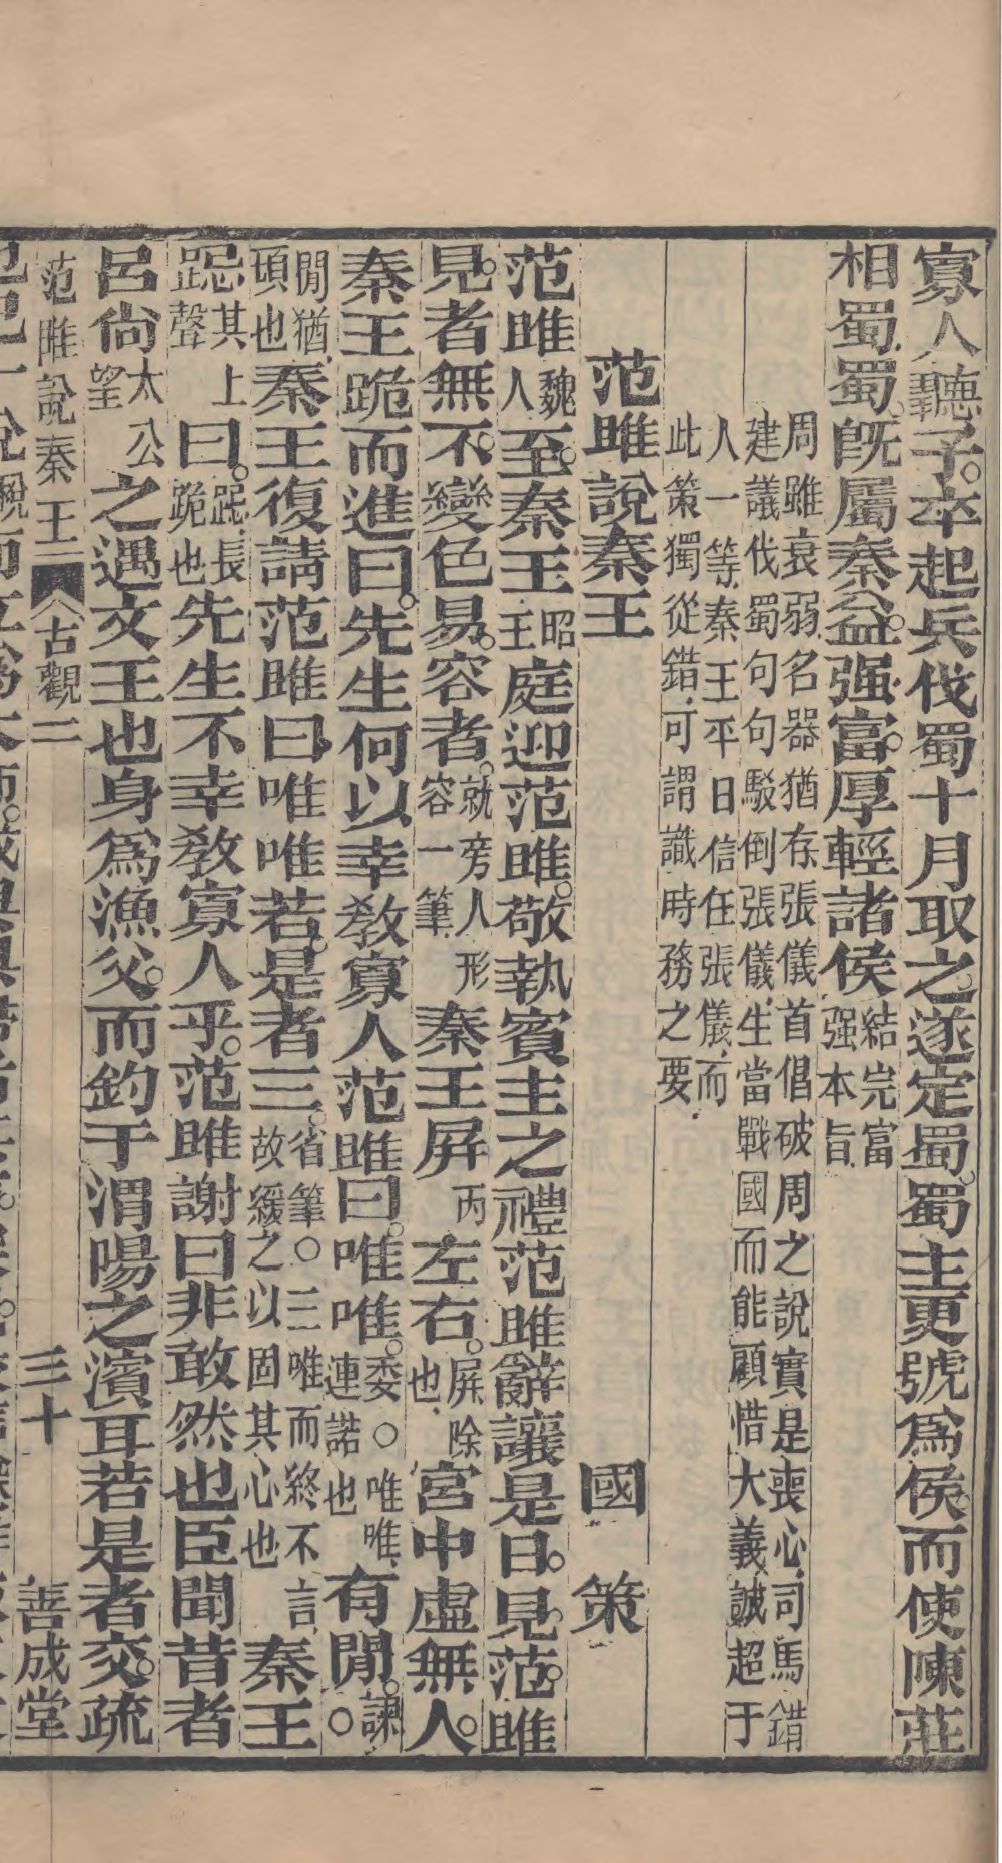 寡人聽子。卒起兵伐蜀十月取之。遂定蜀。蜀主更號爲侯。而使陳莊
相蜀。蜀。旣屬秦益。强富。厚輕諸侯結完富强本旨
周雖衰弱名器猶存張儀首倡破周之說實是喪心司馬錯
建議伐蜀句句駁倒張儀生當戰國而能顧惜大義誠超于
人一等秦王平日信任張儀而
此策獨從錯可謂識時務之要
范雎說秦王 國策
范雎魏人至。秦王昭王庭迎范雎。敬執賓主之禮范雎辭讓是日。見。范。雎
見。者無。不。變色易。容者。就旁人形容一筆秦王屏丙左右。屏除也宮中虛無人。
秦王跪而進曰。先生何以幸敎寡人范雎曰。唯唯。委○唯唯連諾也有閒。諫○
閒猶頃也秦王復請范雎曰唯唯若。是者三。省筆○三唯而終不言故緩之以固其心也秦王
跽忌其上聲曰。跽長跪也先生不幸敎寡人乎。范雎謝曰非敢然也臣聞昔者
呂尙太公望之遇文王也身爲漁父。而釣于渭陽之濱耳若是者交。疏
范雎說秦王 古觀二 三十 善成堂